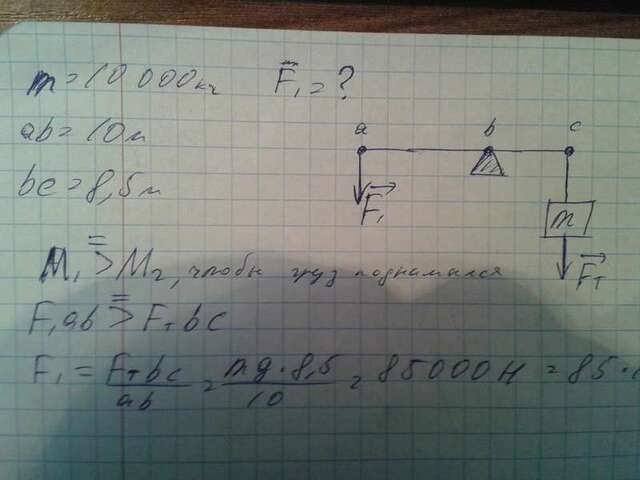 m = 10 000 кг F₁ = ?
ab = 10 м
bc = 8,5 м
a b c
F₁
m
Fт
M₁ ≥ M₂, чтобы груз поднимался
F₁ab ≥ Fт bc
F₁ = Fт bc / ab = mg · 8,5 / 10 = 85000 Н = 85 ·